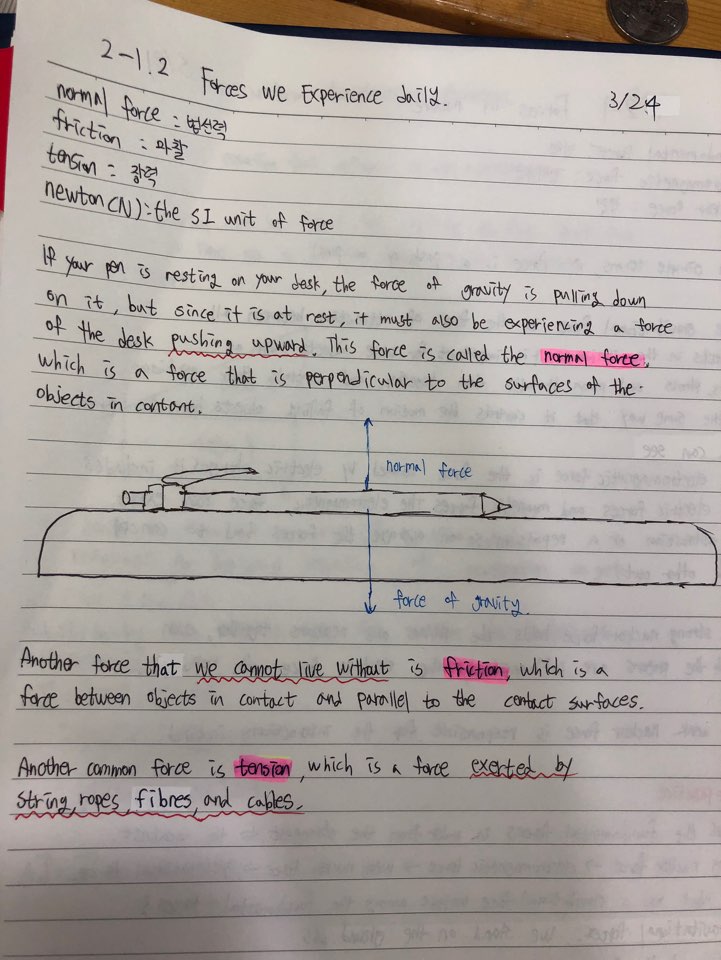 2-1.2 Forces we Experience daily. 3/24
normal force = 법선력
friction = 마찰
tension = 장력
newton(N): the SI unit of force
If your pen is resting on your desk, the force of gravity is pulling down
on it, but since it is at rest, it must also be experiencing a force
of the desk pushing upward. This force is called the normal force,
which is a force that is perpendicular to the surfaces of the
objects in contant.
normal force
force of gravity.
Another force that we cannot live without is friction, which is a
force between objects in contact and parallel to the contact surfaces.
Another common force is tension, which is a force exerted by
string, ropes, fibres, and cables.